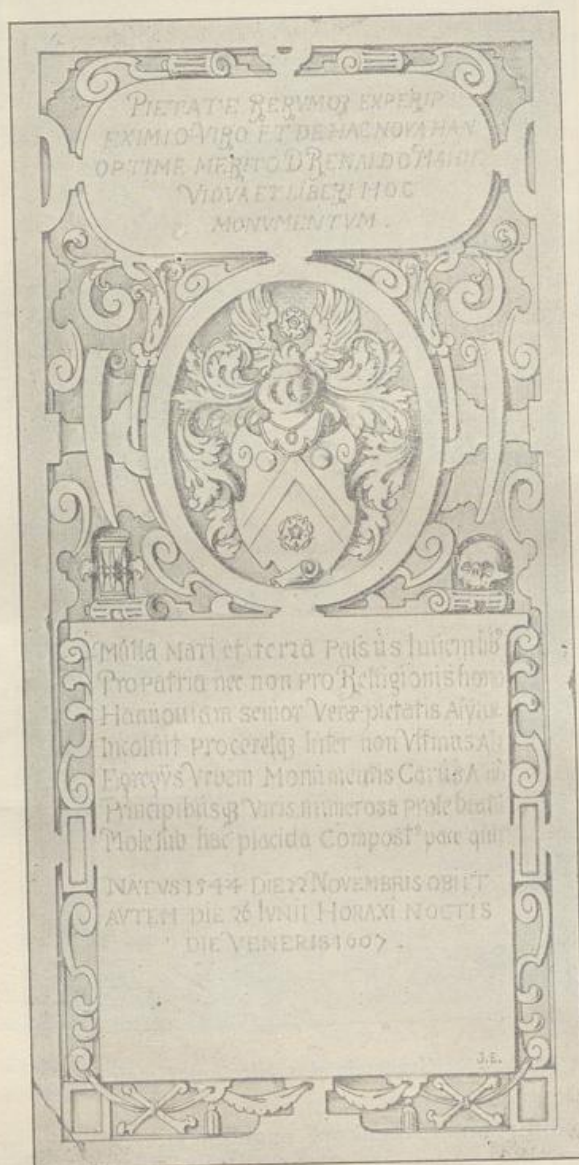 PIETATE RERVMQƷ EXPERIP
EXIMIO VIRO ET DE HAC NOVA HAN
OPTIME MERITO D RENALDO
VIDVA ET LIBERI HOC
MONVMENTVM .
Multa Mari et terra Paſsus
Pro patria nec non pro Relligionis hono
Hannouiam senior Veræ pietatis
Incoluit procereſqʒ Inter non Vltimus
Egregÿs Vrbem Monumentis Carus
Principibusqʒ Viris numerosa prole
Mole ſub hac placida pace
NATVS 1544 DIE 22 NOVEMBRIS OBIIT
AVTEM DIE 26 IVNII HORA XI NOCTIS
DIE VENERIS 1607 .
J.E.